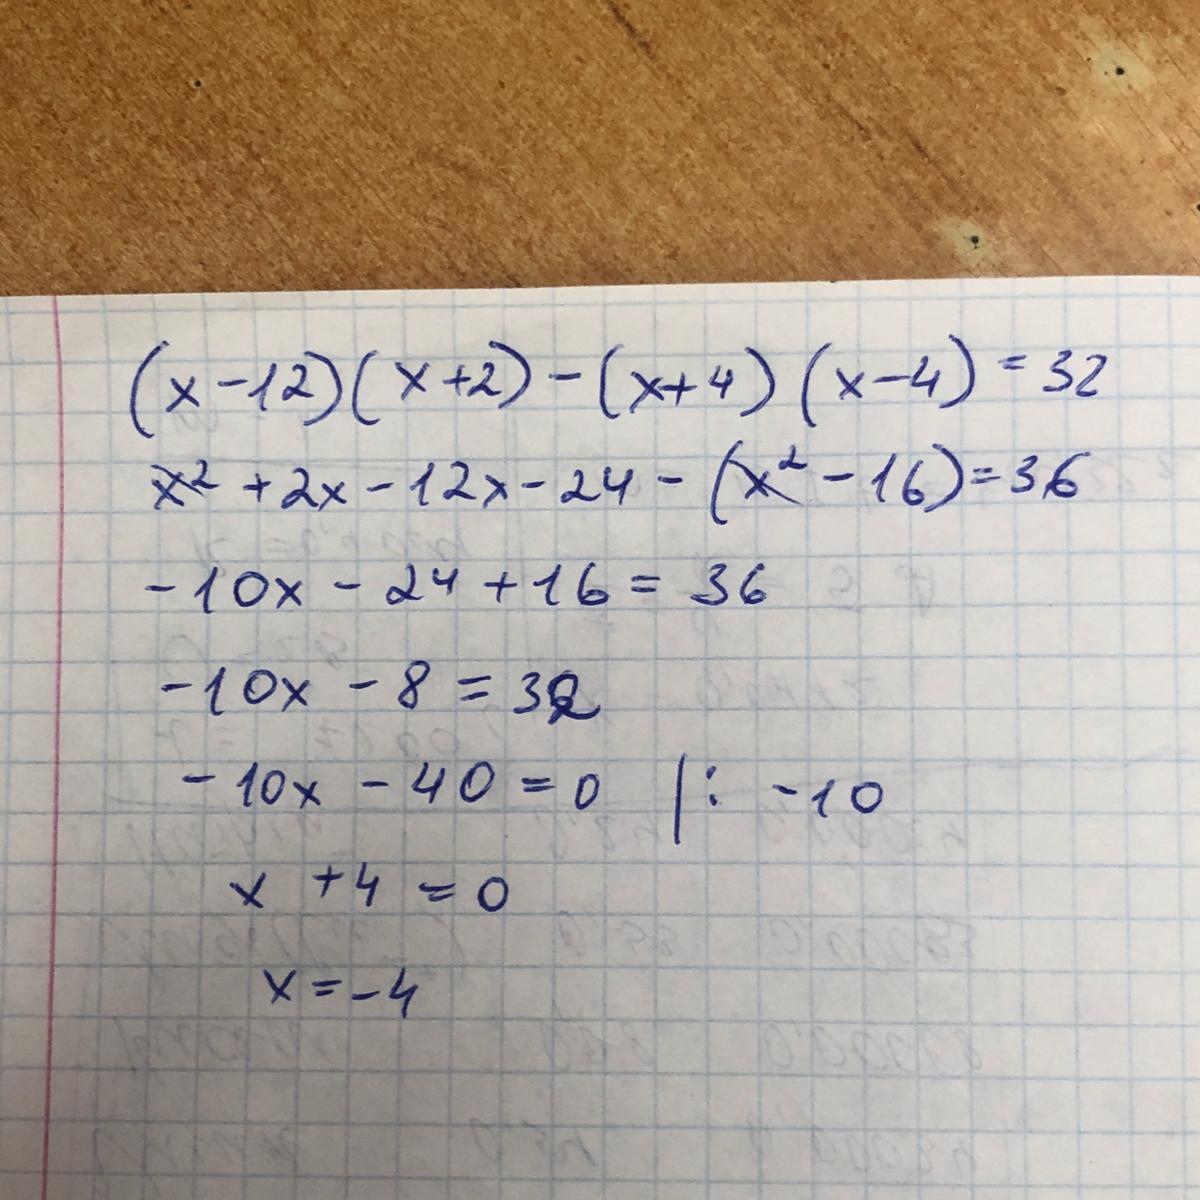 (x-12)(x+2)-(x+4)(x-4)=32
x²+2x-12x-24-(x²-16)=36
-10x-24+16=36
-10x-8=32
-10x-40=0 |: -10
x+4=0
x=-4